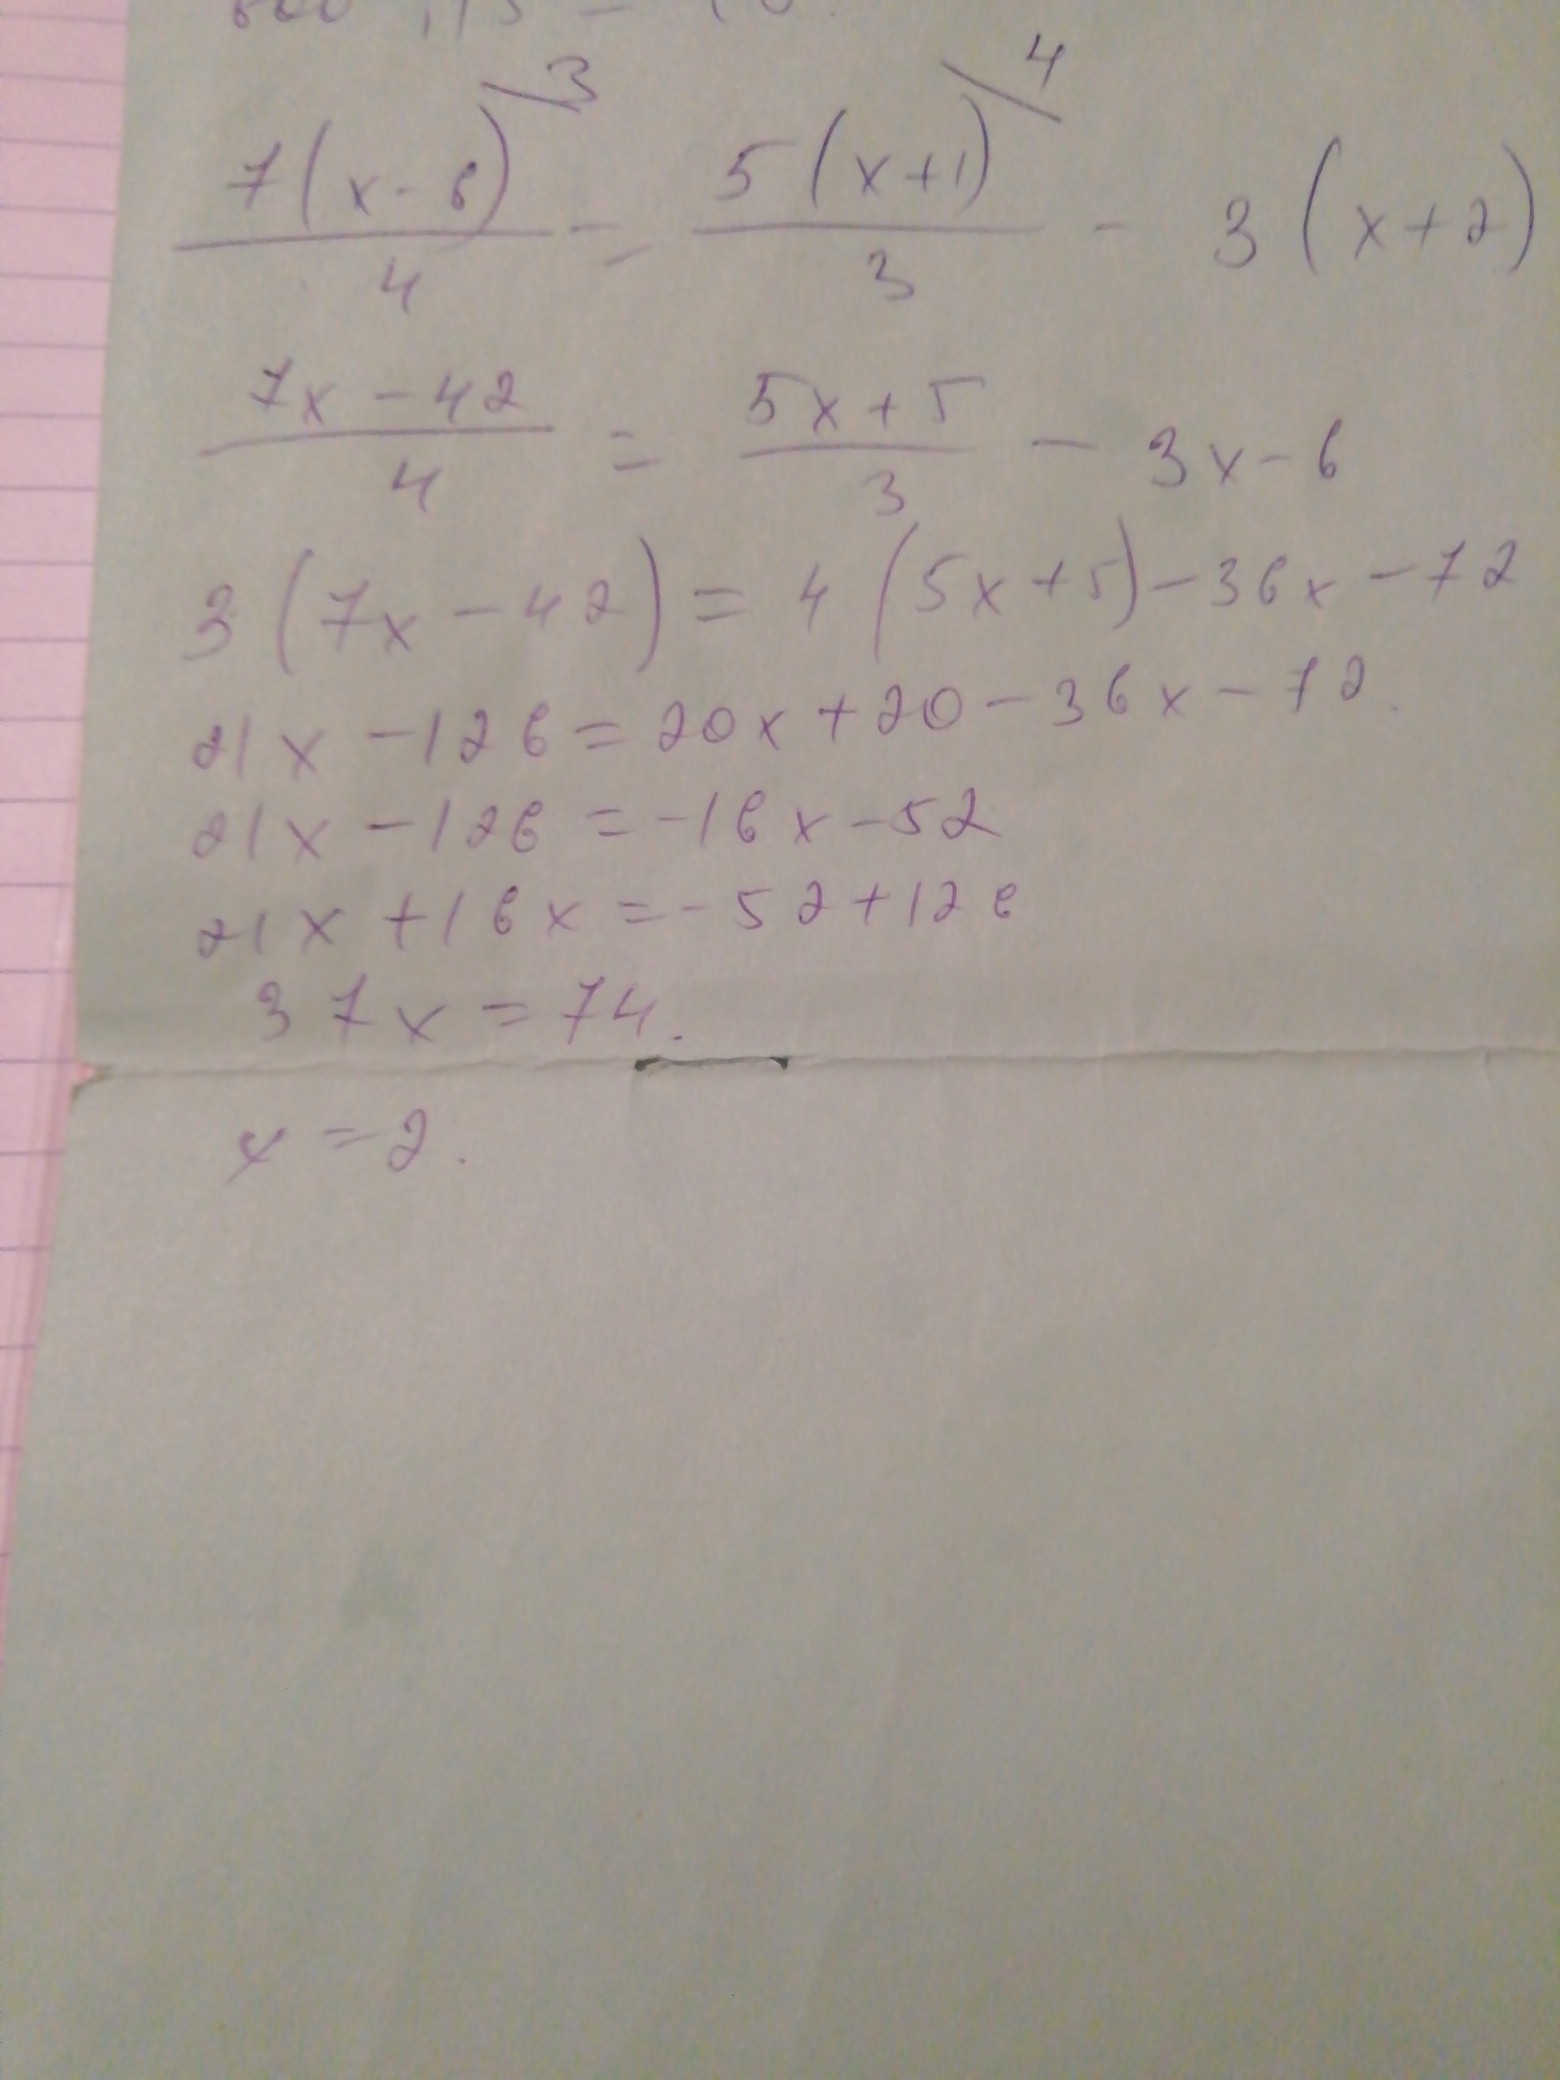 7(x-6)\3 / 4 = 5(x+1)\4 / 3 - 3(x+2)
7x - 42 / 4 = 5x + 5 / 3 - 3x - 6
3(7x - 42) = 4(5x + 5) - 36x - 72
21x - 126 = 20x + 20 - 36x - 72.
21x - 126 = -16x - 52
21x + 16x = -52 + 126
37x = 74.
x = 2.